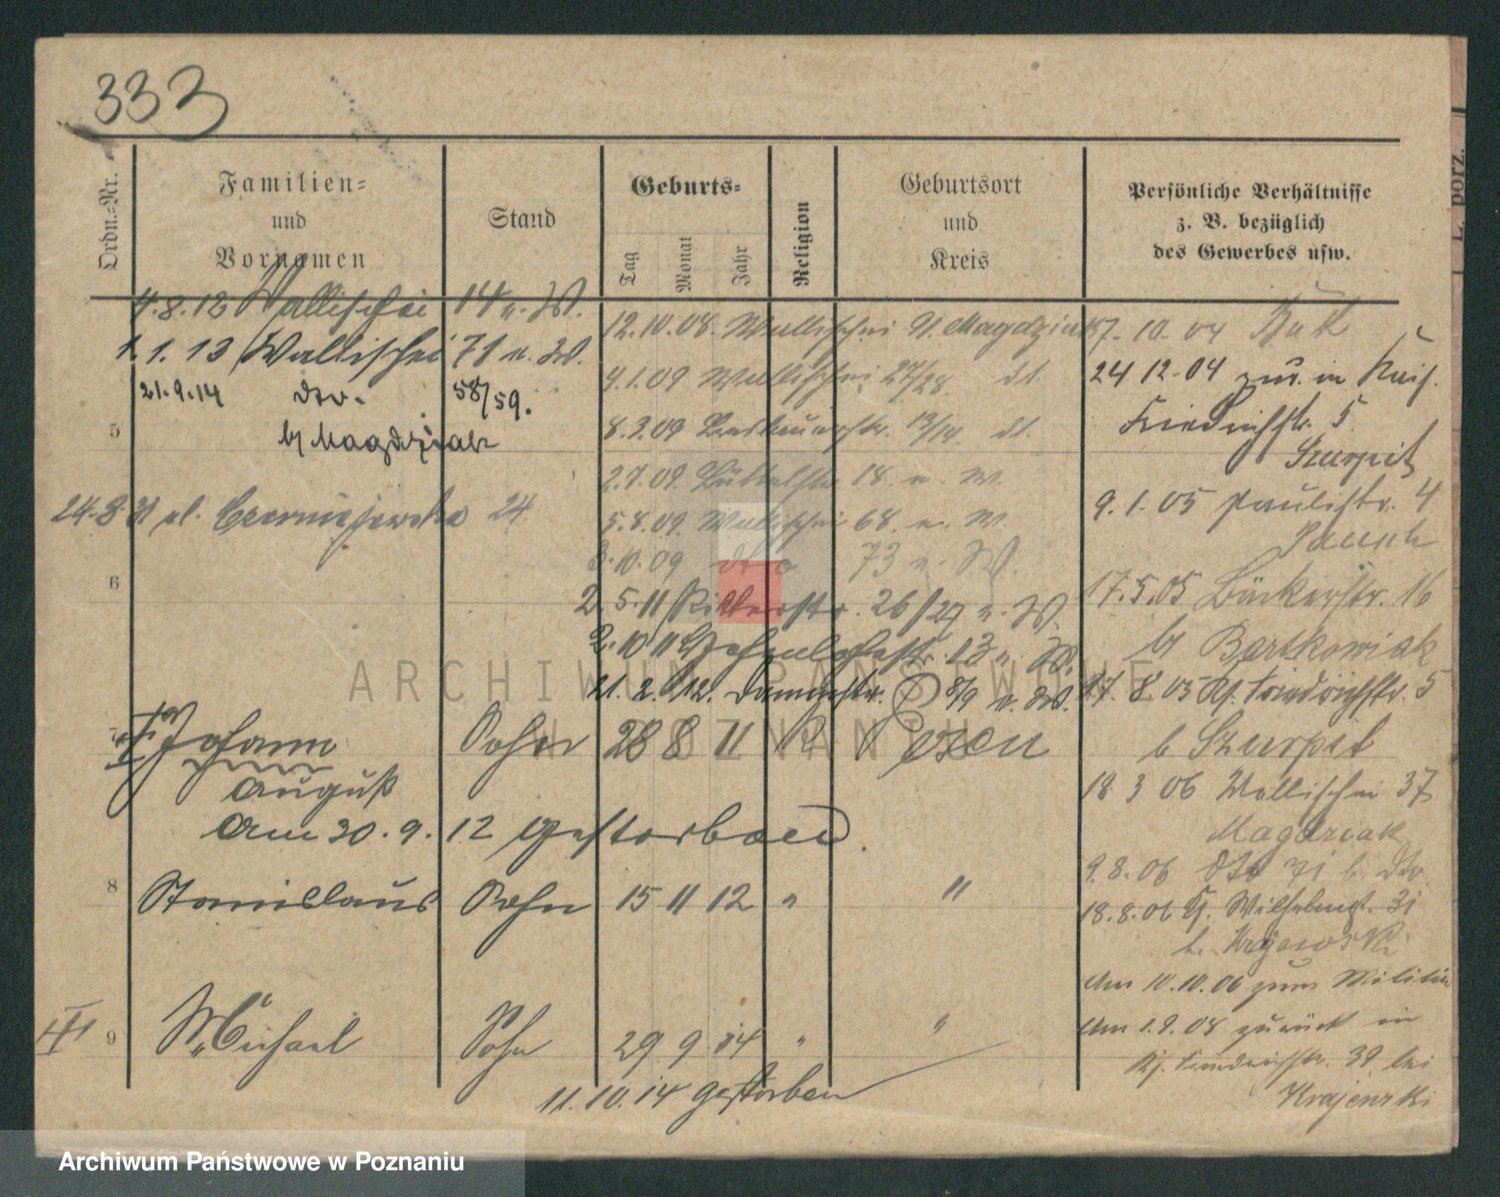 333
Ordn.=Nr.
Familien=
und
Vornamen
Stand
Geburts=
Tag
Monat
Jahr
Religion
Geburtsort
und
Kreis
Persönliche Verhältnisse
z. B. bezüglich
des Gewerbes usw.
L. porz.
4.8.12 Wallischei 14 u. W.
1.1.13 Wallischei 71 u. W.
21.9.14 dto. 58/59.
b/ Magdziak
5
24.8.31 Czerniejewska 24.
6
12.10.08. Wallischei b/ Magdziak
4.1.09 Wallischei 27/28. dt.
8.3.09 13/14 dt.
2.7.09. Büttelstr. 18. u. W.
5.8.09. Wallischei 68. u. W.
3.10.09 dto 73 u. W.
2.5.11 Ritterstr. 26/27 u. W.
2.10.11 13 u. W.
21.2.12. Dammstr. 8/9 u. W.
7 Johann Sohn 28 8 11 Posen
August
Am 30.9.12 gestorben.
8 Stanislaus Sohn 15 11 12 " "
9 Michael Sohn 29 9 14 " "
11.10.14 gestorben
7.10.04
24 12.04 zur. in Kais.
Friedrichstr. 5
Szurpit
9.1.05 Paulistr. 4
17.5.05 Bäckerstr. 16
b/ Bartkowiak
17.8.05 Kf. Friedrichstr. 5
b Szurpit
18 3 06 Wallischei 37
Magdziak
9.8.06 dto 71 b. dto
18.8.06 Kf. Wilhelmst. 31
b. Krajewski
Am 10.10.06 zum Militär
Am 1.9.08 zurück in
Kf. Friedrichstr. 39 bei
Krajewski
ARCHIWUM PAŃSTWOWE
W POZNANIU
Archiwum Państwowe w Poznaniu